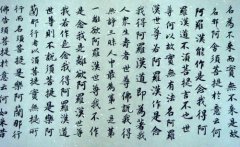 名為不來而實無來是故
名阿那含須菩提於意云何
阿羅漢能作是念我得阿
羅漢道不須菩提言不也世
尊何以故實無有法名阿羅
漢世尊若阿羅漢作是念
我得阿羅漢道即為著我
人眾生壽者世尊佛說我得
無諍三昧人中最為第一是第
一離欲阿羅漢世尊我不作
是念我是離欲阿羅漢世尊
我若作是念我得阿羅漢道
世尊則不說須菩提是樂阿
蘭那行者以須菩提實無所
行而名須菩提是樂阿蘭那行
佛告須菩提於意云何如來昔